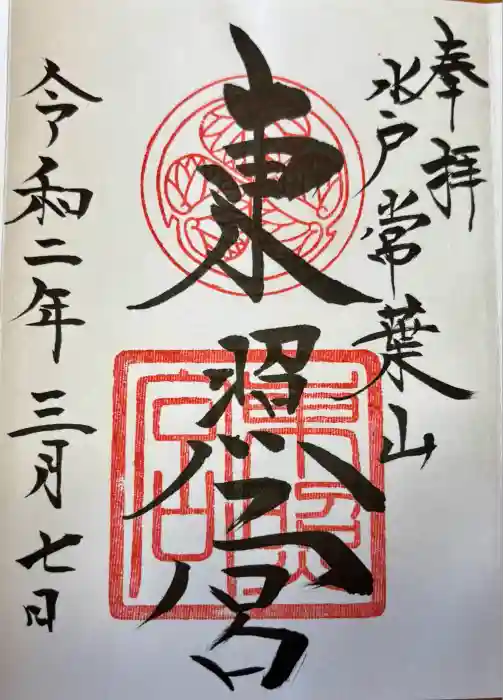 奉拝
水戸常葉山
東照宮
東照宮
令和二年三月七日